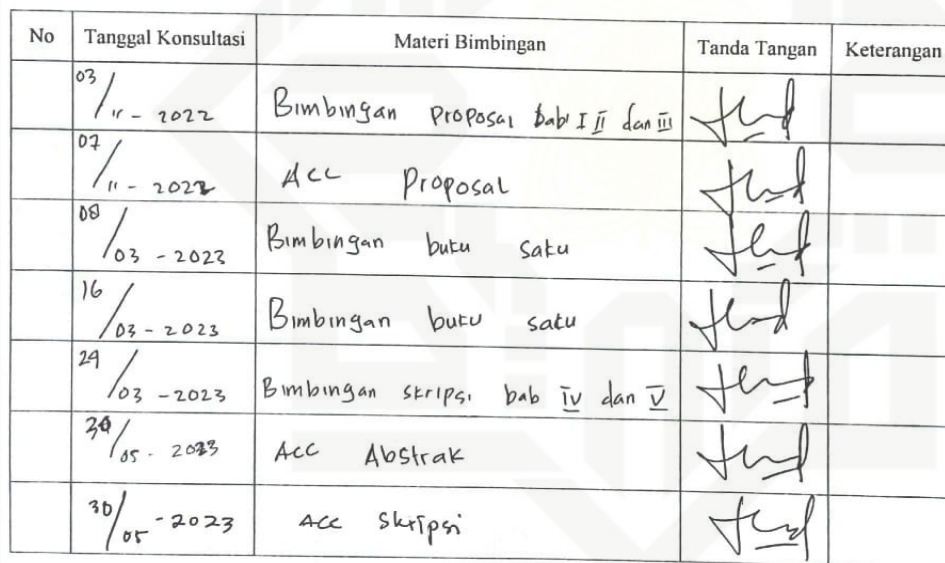 No Tanggal Konsultasi Materi Bimbingan Tanda Tangan Keterangan
03/11 - 2022 Bimbingan Proposal bab I II dan III
07/11 - 2022 Acc Proposal
08/03 - 2023 Bimbingan buku satu
16/03 - 2023 Bimbingan buku satu
29/03 - 2023 Bimbingan skripsi bab IV dan V
30/05 - 2023 Acc Abstrak
30/05 - 2023 Acc Skripsi